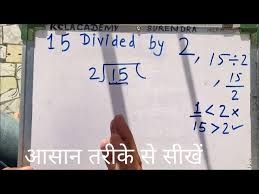 KCLACADEMY SURENDRA
15 Divided by 2, 15÷2
2)15(
15/2
1<2×
15>2✓
आसान तरीके से सीखें